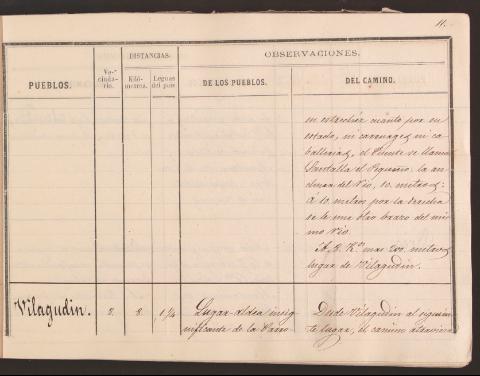 11.
OBSERVACIONES.
DISTANCIAS.
PUEBLOS.
Ve-
cinda-
rio.
Kiló-
metros.
Leguas
del pais
DE LOS PUEBLOS.
DEL CAMINO.
su estrechez cuanto por su
estado, ni carruages ni ca
ballerias, el Puente se llama
Santalla el Pequeño; la an
chura del rio, 10. metros;
á 10. metros por la derecha
se le une otro brazo del mis
mo rio.
A 8. K.os mas 200. metros
lugar de Vilagudin.
Vilagudin.
2.
8.
1 1/4
Lugar-aldea insig
nificante de la Parro-
Desde Vilagudin al siguien
te lugar, el camino atraviesa